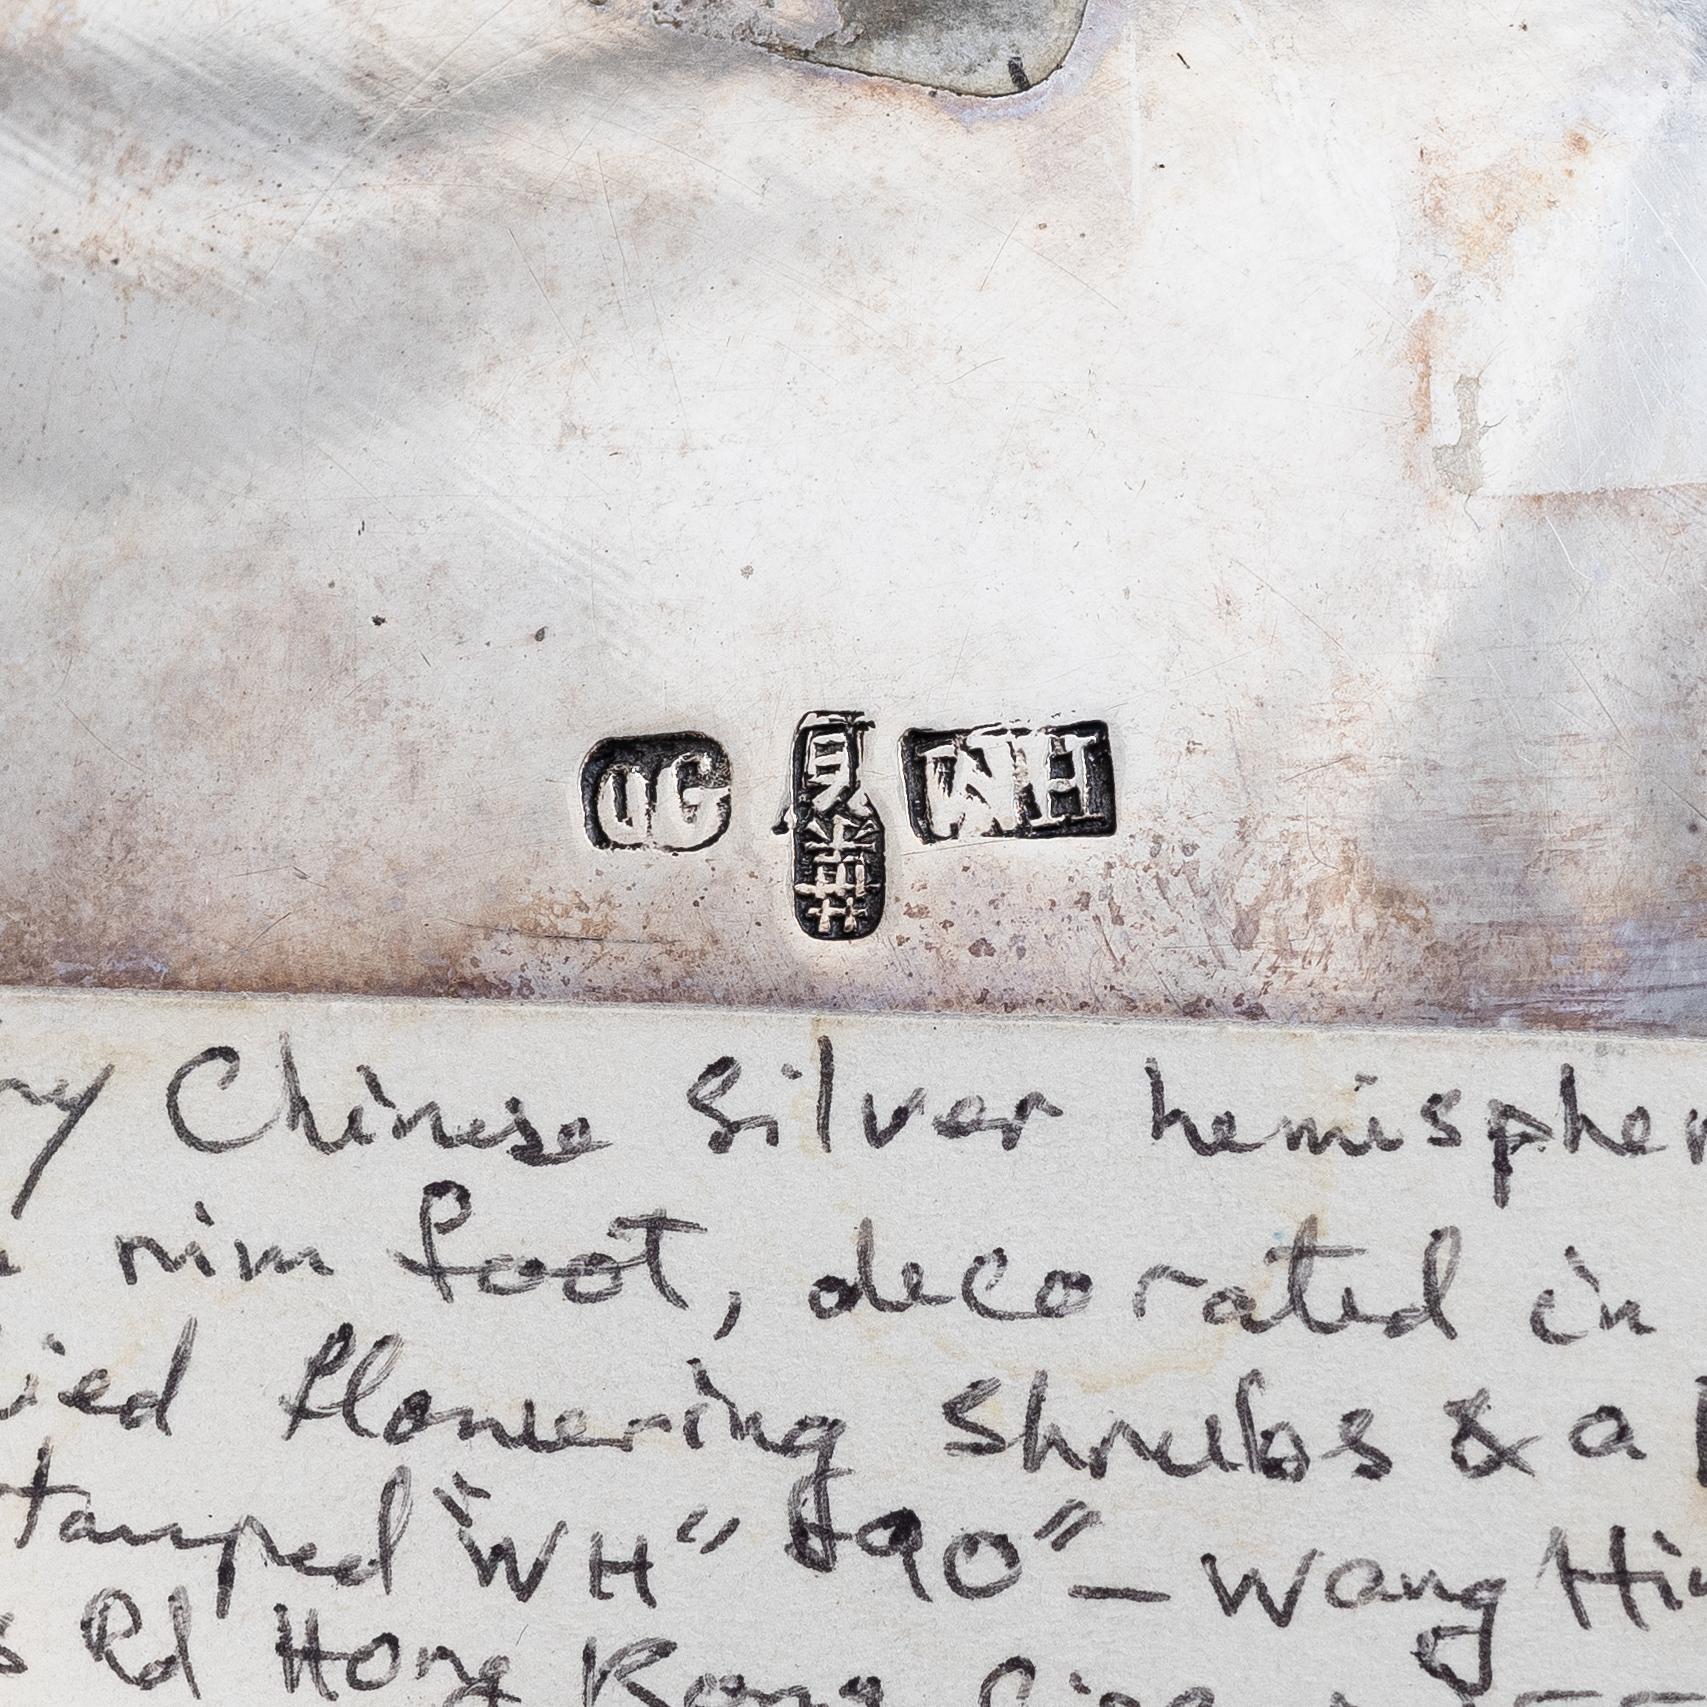 WH
ry Chinese Silver hemispher
rim foot, decorated in
ied flowering Shrubs & a
tamped "WH" & "90" — Wang Hi
s Rd Hong Kong